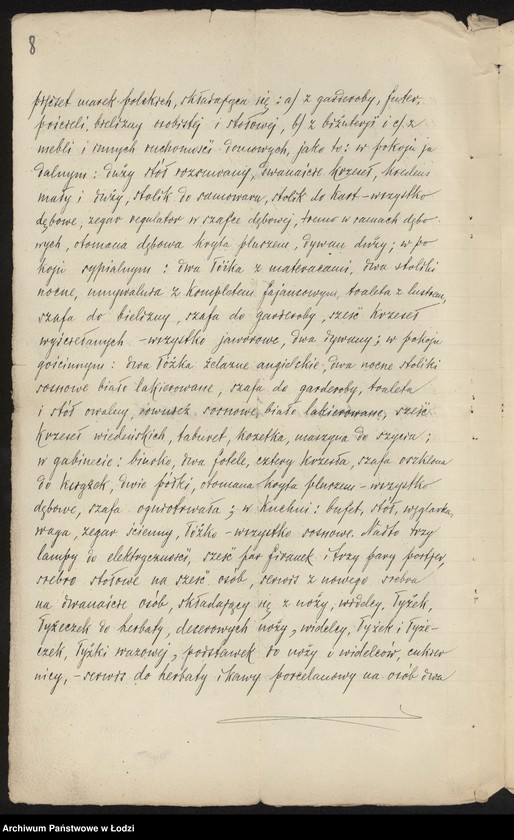 8
pięćset marek polskich, składająca się: a/ z garderoby, futer,
pościeli, bielizny osobistej i stołowej, b/ z biżuterji i c/ z
mebli i innych ruchomości domowych, jako to: w pokoju ja
dalnym: duży stół rozsuwany, dwanaście krzeseł, kredens
mały i duży, stolik do samowara, stolik do kart – wszystko
dębowe, zegar regulator w szafce dębowej, tremo w ramach dębo-
wych, otomana dębowa kryta pluszem, dywan duży; w po
koju sypialnym: dwa łóżka z materacami, dwa stoliki
nocne, umywalnia z kompletem fajansowym, toaleta z lustrem,
szafa do bielizny, szafa do garderoby, sześć krzeseł
wyściełanych – wszystko jaworowe, dwa dywany; w pokoju
gościnnym: dwa łóżka żelazne angielskie, dwa nocne stoliki
sosnowe biało lakierowane, szafa do garderoby, toaleta
i stół owalny, również sosnowe, biało lakierowane, sześć
krzeseł wiedeńskich, taburet, kozetka, maszyna do szycia;
w gabinecie: biurko, dwa fotele, cztery krzesła, szafa oszklona
do książek, dwie półki, otomana kryta pluszem – wszystko
dębowe, szafa ogniotrwała; w kuchni: bufet, stół, węglarka,
waga, zegar ścienny, łóżko – wszystko sosnowe. Nadto trzy
lampy do elektryczności, sześć par firanek i trzy pary portjer,
srebro stołowe na sześć osób, serwis z nowego srebra
na dwanaście osób, składający się z noży, widelcy, łyżek,
łyżeczek do herbaty, deserowych noży, widelcy, łyżek i łyże-
czek, łyżki wazowej, podstawek do noży i widelców, cukier
nicy, – serwis do herbaty i kawy porcelanowy na osób dwa
Archiwum Państwowe w Łodzi